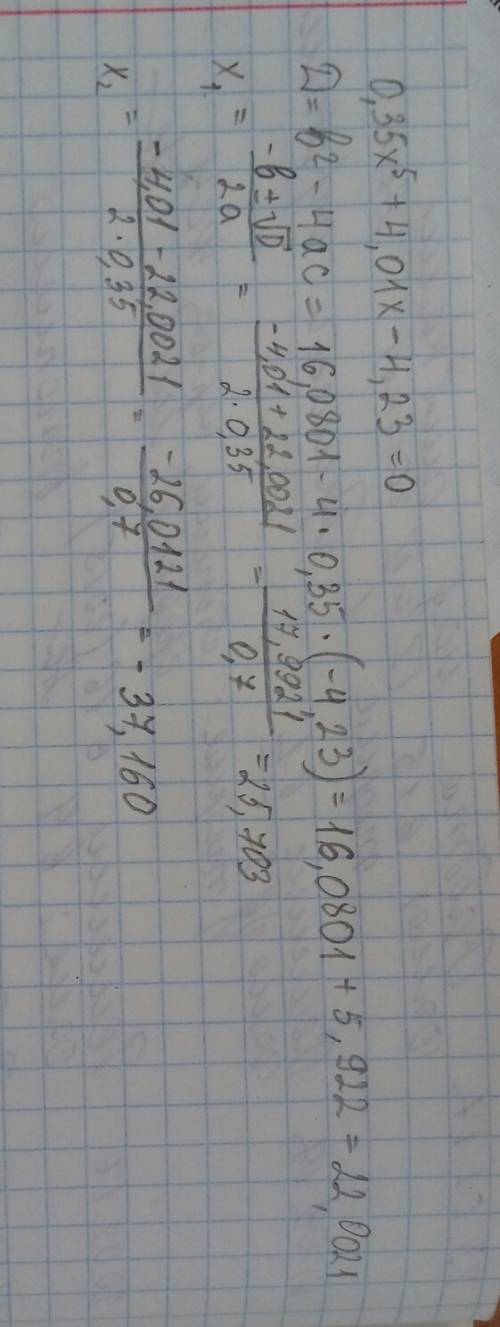 0,35x⁵ + 4,01x - 4,23 = 0
D = b² - 4ac = 16,0801 - 4 · 0,35 · (-4,23) = 16,0801 + 5,922 = 22,0021
x₁ = (-b ± √D)/(2a) = (-4,01 + 22,0021)/(2 · 0,35) = 17,9921/0,7 = 25,703
x₂ = (-4,01 - 22,0021)/(2 · 0,35) = -26,0121/0,7 = -37,160